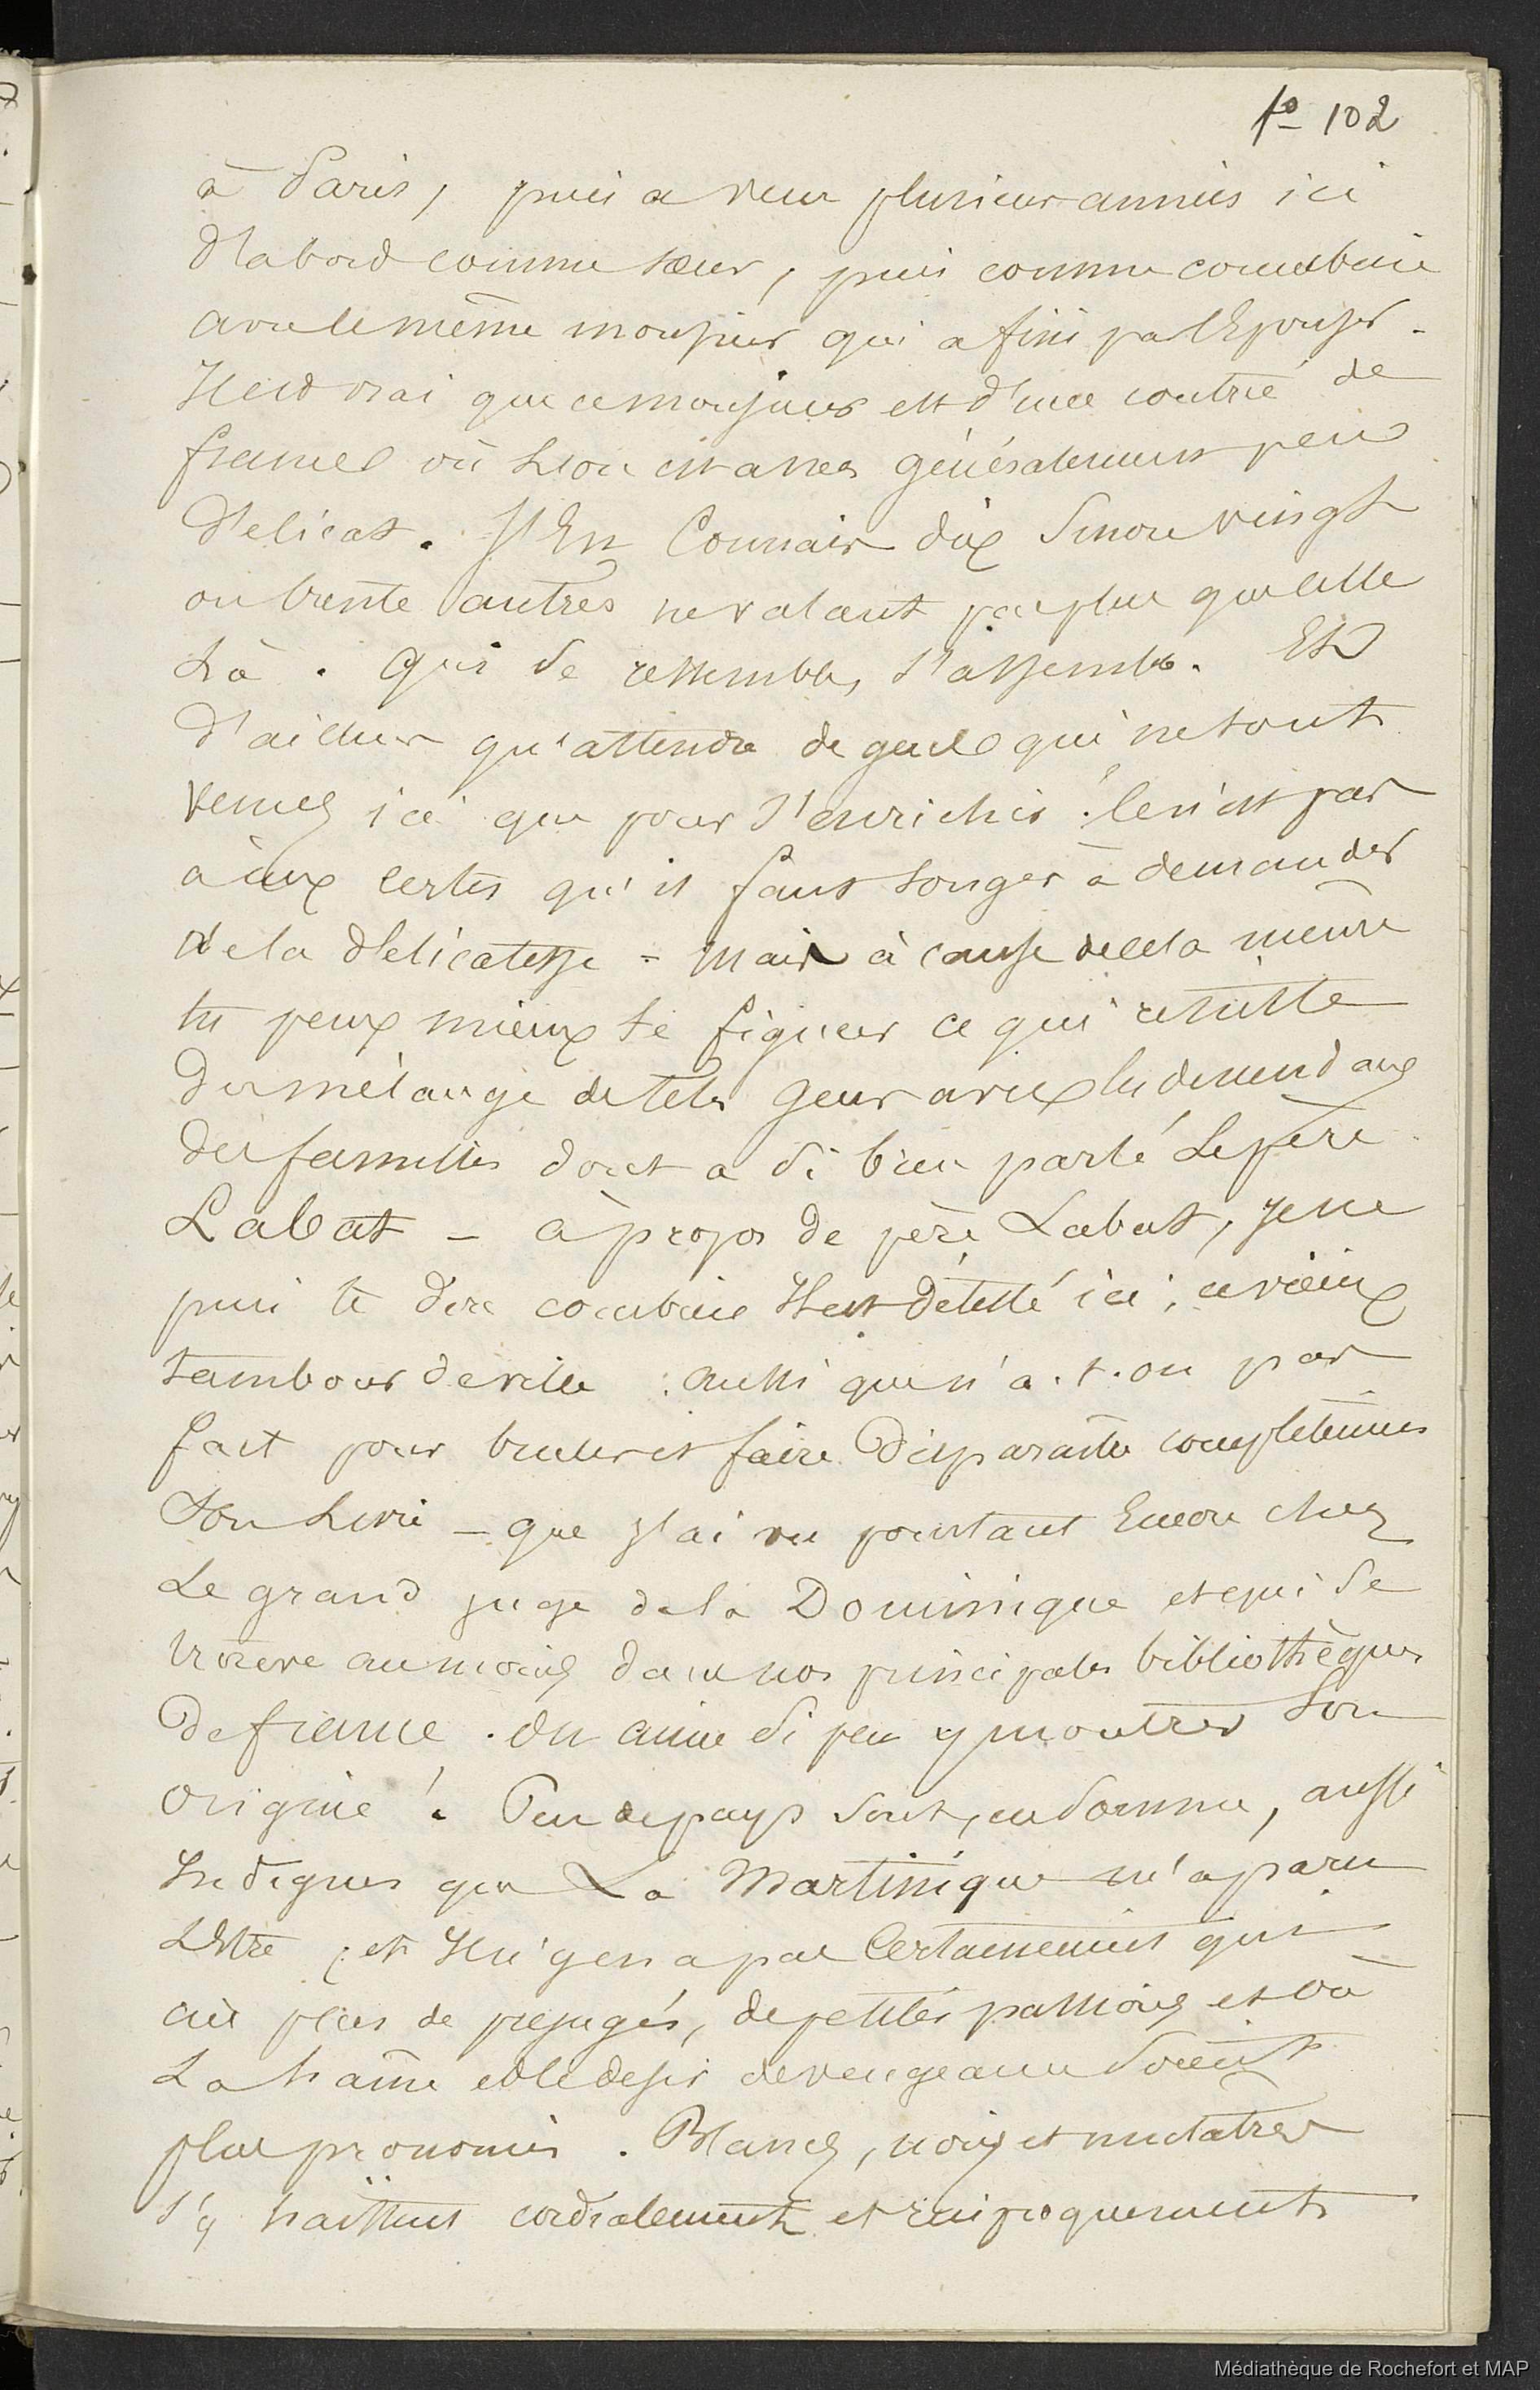 fo 102
à Paris, puis a vecu plusieurs années ici
d'abord comme sœur, puis comme concubine
avec le même monsieur qui a fini par l'Epouser.
Il est vrai que ce monsieur est d'une contrée de
france où l'on est assez généralement peu
délicat. J'En Connais dix Sinon vingt
ou trente autres ne valant pas plus que celle
Là. Qui Se ressemble, s'assemble. Et
d'ailleurs qu'attendre de gens qui ne sont
venus ici que pour s'enrichir. Ce n'est pas
à eux certes qu'il faut songer à demander
de la délicatesse - Mais à cause de cela même
tu peux mieux te figurer ce qui résulte
du mélange de tels gens avec les descendans
des familles dont a Si bien parlé Le père
Labat - à propos de père Labat, je ne
puis te dire combien Il est détesté ici, ce vieux
tambour de ville : aussi que n'a-t-on pas
fait pour bruler et faire disparaitre complètement
Son Livre - que j'ai vu pourtant Encore chez
Le grand juge de la Dominique et qui Se
trouve au moins dans nos principales bibliothèques
de france. On aime Si peu y montrer Son
origine ! Peu de pays Sont, en Somme, aussi
Indignes que La Martinique m'a paru
L'Etre ; et Il n'y en a pas Certainement qui
ait plus de préjugés, de petites passions et où
La haine et le desir de vengeance Soient
plus prononcés. Blancs, noirs et mulatres
s'y haïssent cordialement et réciproquement
Médiathèque de Rochefort et MAP